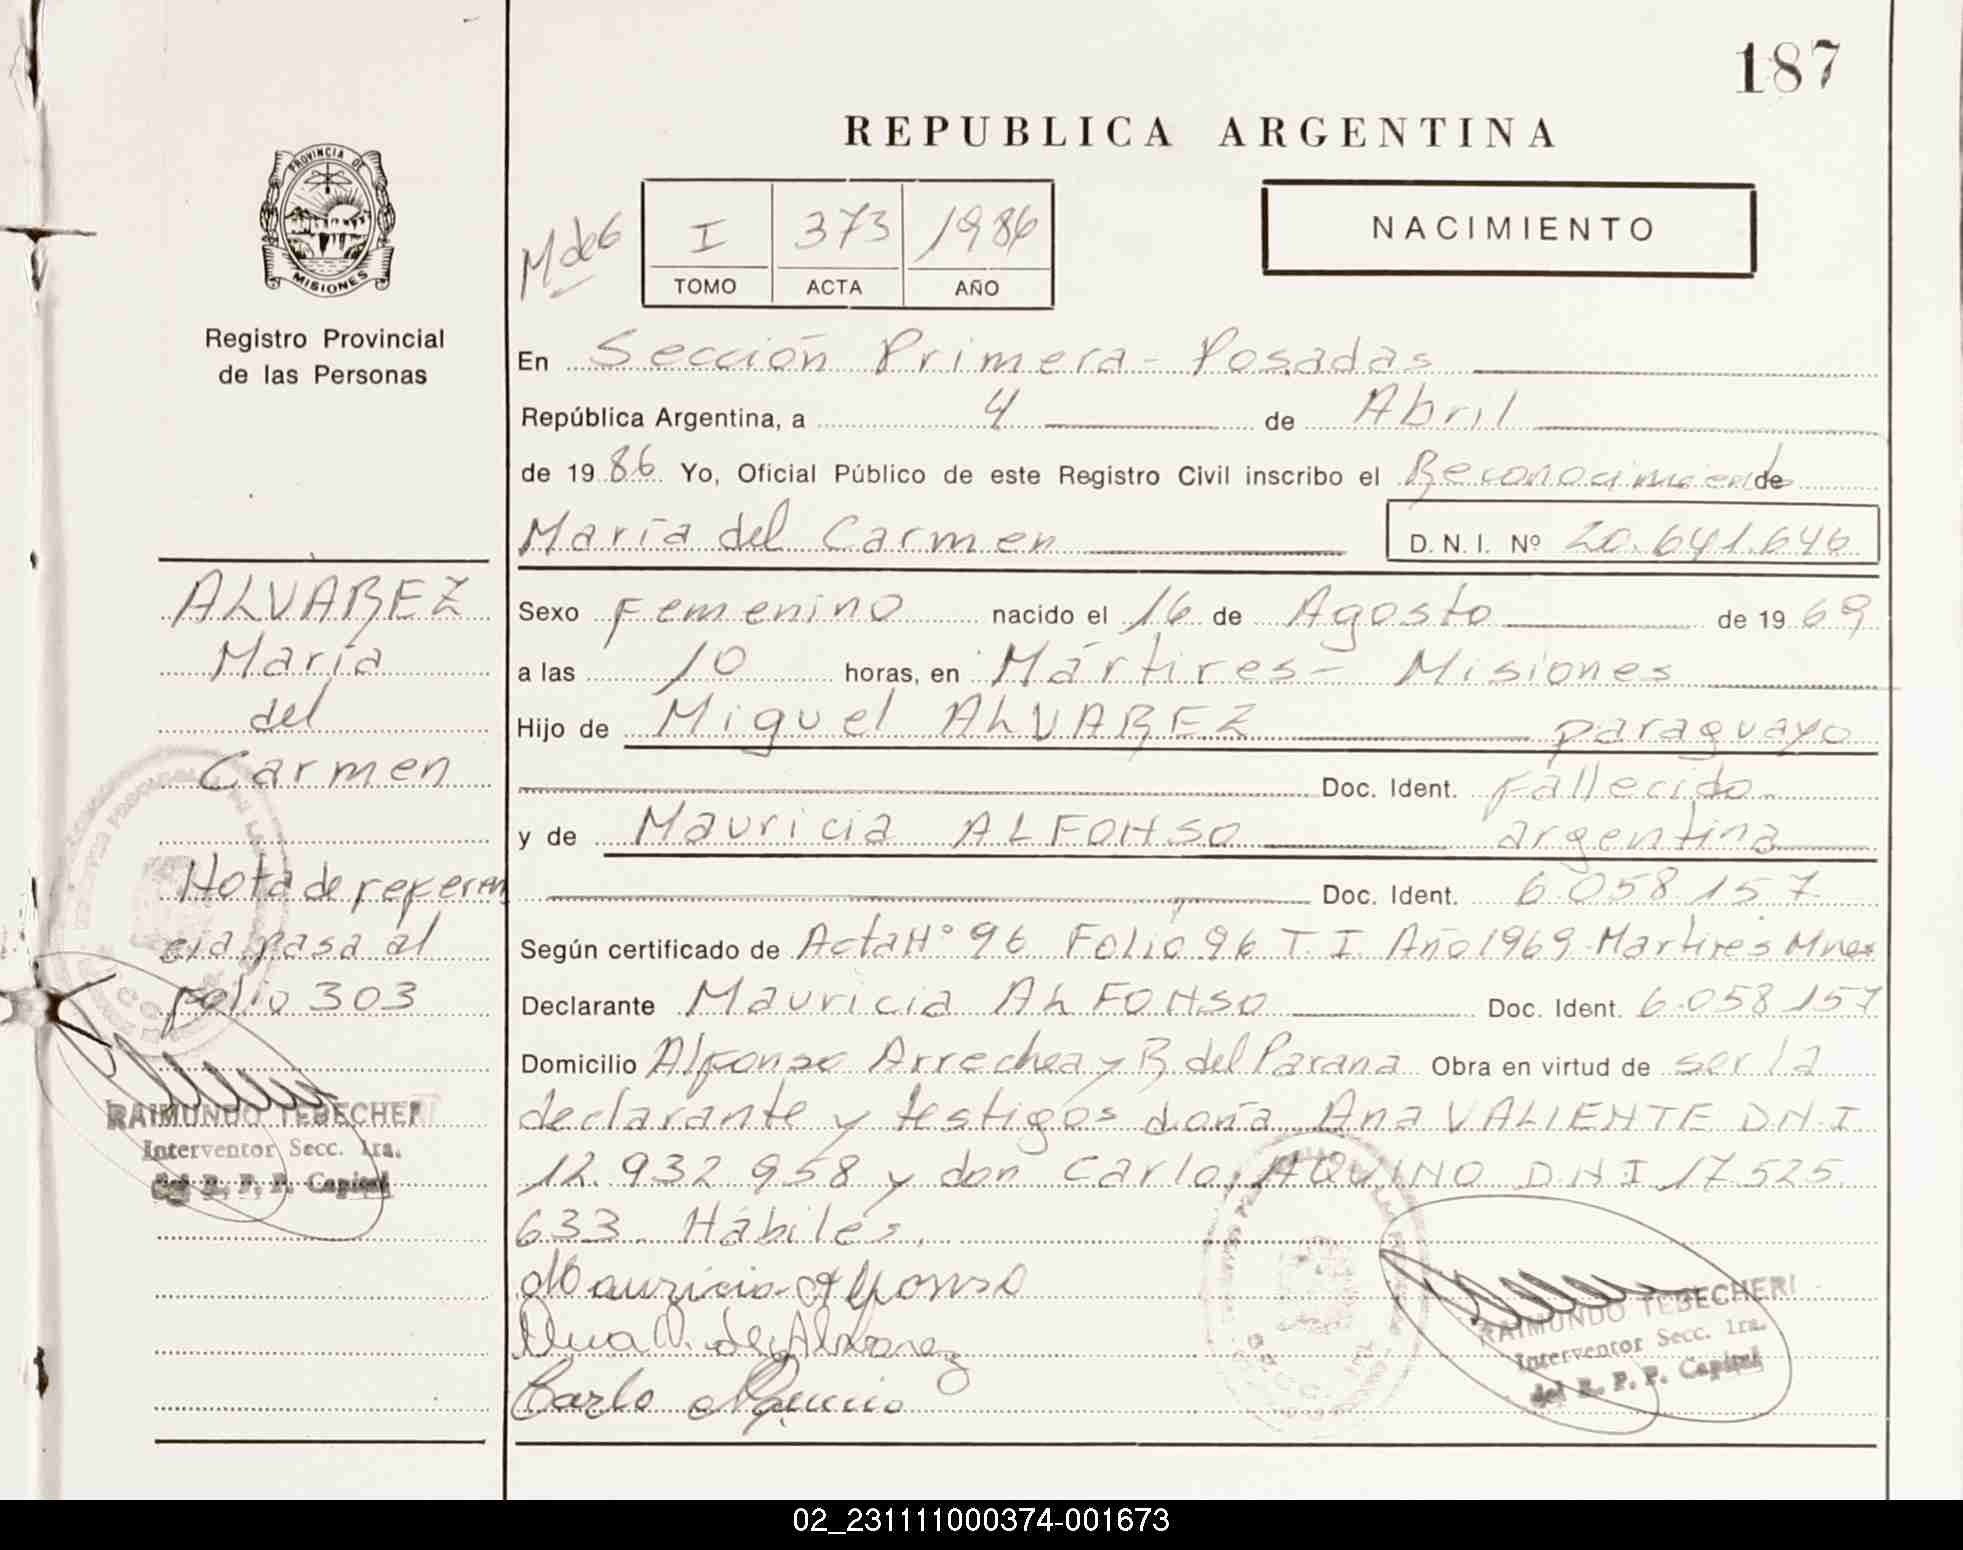 187
REPUBLICA ARGENTINA
PROVINCIA DE
MISIONES
Registro Provincial
de las Personas
M de G
I 373 1986
TOMO ACTA AÑO
NACIMIENTO
En Sección Primera - Posadas
República Argentina, a 4 de Abril
de 1986 Yo, Oficial Público de este Registro Civil inscribo el Reconocimiento de
María del Carmen D. N. I. Nº 20.641.646
Sexo Femenino nacido el 16 de Agosto de 1969
a las 10 horas, en Mártires - Misiones
Hijo de Miguel ALVAREZ paraguayo
Doc. Ident. Fallecido
y de Mauricia ALFONSO argentina
Doc. Ident. 6.058.157
Según certificado de Acta Nº 96 Folio 96 T. I. Año 1969 Martires Mnes
Declarante Mauricia ALFONSO Doc. Ident. 6.058.157
Domicilio Alfonso Arrechea y R. del Parana Obra en virtud de ser la
declarante y testigos doña Ana VALIENTE D.N.I.
12.932.958 y don Carlo AQUINO D.N.I 17.525.
633. Hábiles.
Mauricia Alfonso
Ana V. de Alvarez
Carlo Aquino
RAIMUNDO TEBECHERI
Interventor Secc. 1ra.
del R. P. P. Capital
ALVAREZ
María
del
Carmen
Nota de referen
cia pasa al
folio 303
RAIMUNDO TEBECHERI
Interventor Secc. 1ra.
del R. P. P. Capital
02_231111000374-001673